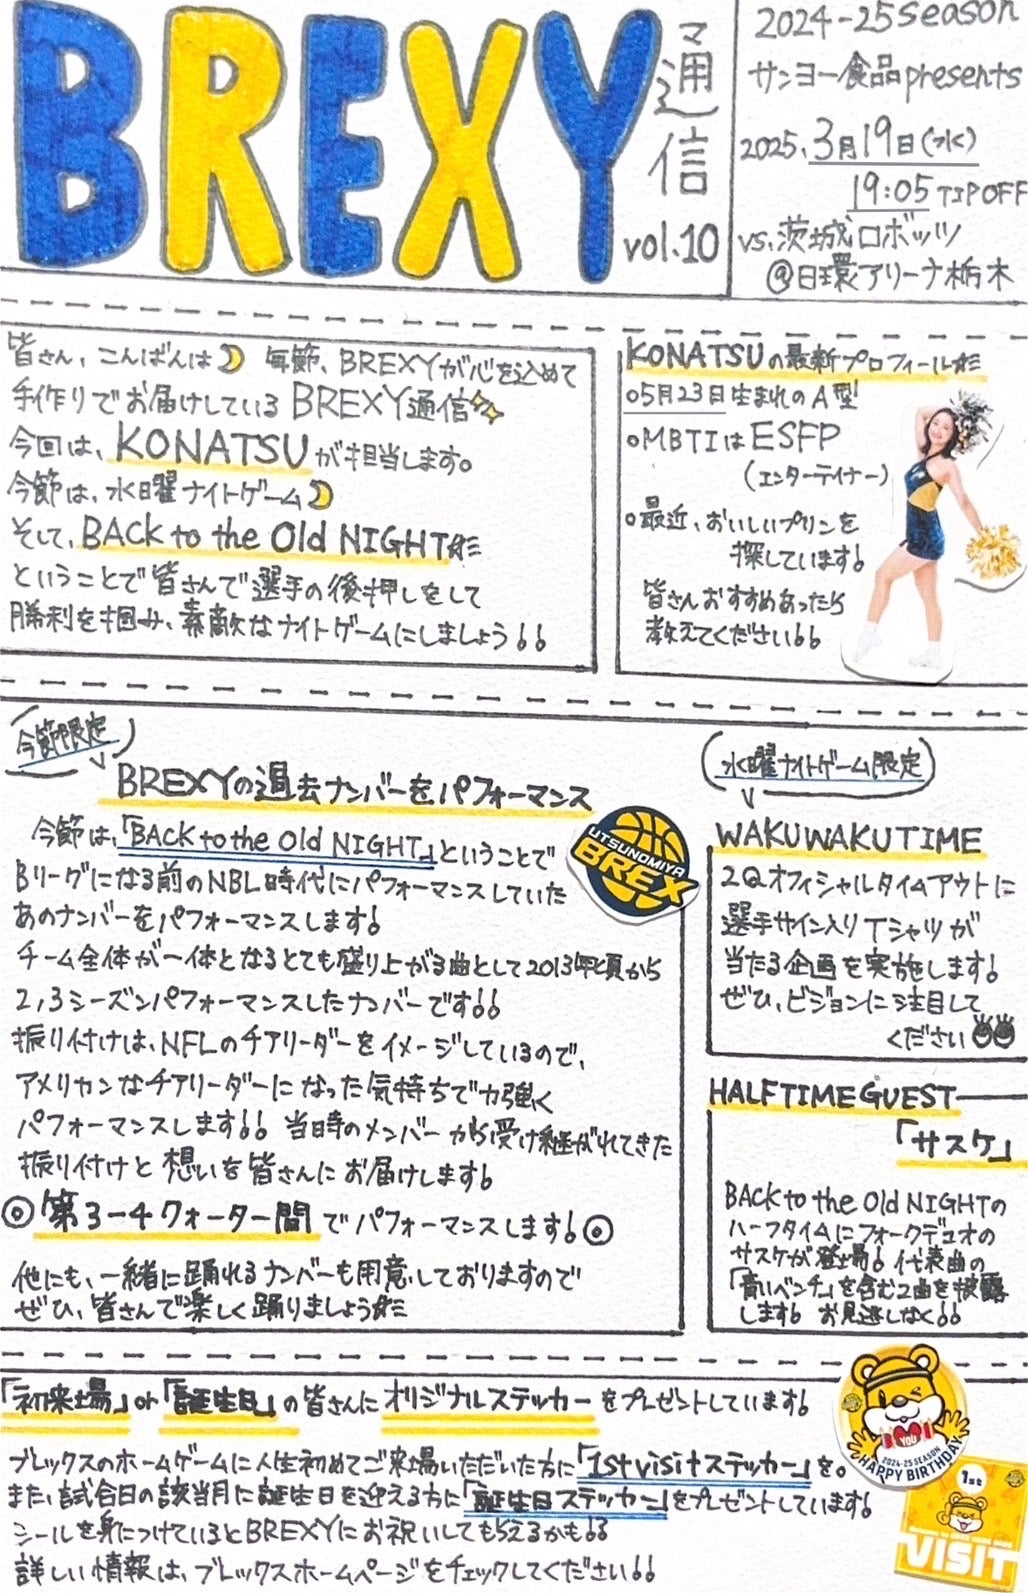 BREXY通信
vol.10
2024-25season
サンヨー食品presents
2025.3月19日(水)
19:05 TIPOFF
vs.茨城ロボッツ
@日環アリーナ栃木
皆さん、こんばんは 毎節、BREXYが心を込めて
手作りでお届けしているBREXY通信
今回は、KONATSUが担当します。
今節は、水曜ナイトゲーム
そして、BACK to the Old NIGHT
ということで皆さんで選手の後押しをして
勝利を掴み、素敵なナイトゲームにしましょう!!
KONATSUの最新プロフィール
○05月23日生まれのA型
○MBTIはESFP
(エンターテイナー)
○最近、おいしいプリンを
探しています!
皆さんおすすめあったら
教えてください!!
今節限定
BREXYの過去ナンバーをパフォーマンス
今節は、「BACK to the Old NIGHT」ということで
Bリーグになる前のNBL時代にパフォーマンスしていた
あのナンバーをパフォーマンスします!
チーム全体が一体となるとても盛り上がる曲として2013年頃から
2,3シーズンパフォーマンスしたナンバーです!!
振り付けは、NFLのチアリーダーをイメージしているので、
アメリカンなチアリーダーになった気持ちで力強く
パフォーマンスします!! 当時のメンバーから受け継がれてきた
振り付けと想いを皆さんにお届けします!
◎第3-4クォーター間でパフォーマンスします!◎
他にも、一緒に踊れるナンバーも用意しておりますので
ぜひ、皆さんで楽しく踊りましょう
UTSUNOMIYA
BREX
(水曜ナイトゲーム限定)
WAKUWAKUTIME
2Qオフィシャルタイムアウトに
選手サイン入りTシャツが
当たる企画を実施します!
ぜひ、ビジョンに注目して
ください
HALFTIMEGUEST
「サスケ」
BACK to the Old NIGHTの
ハーフタイムにフォークデュオの
サスケが登場! 代表曲の
「青いベンチ」を含む2曲を披露
します! お見逃しなく!!
「初来場」or「誕生日」の皆さんにオリジナルステッカーをプレゼントしています!
ブレックスのホームゲームに人生初めてご来場いただいた方に「1st visitステッカー」を。
また、試合日の該当月に誕生日を迎える方に「誕生日ステッカー」をプレゼントしています!
シールを身につけているとBREXYにお祝いしてもらえるかも!!
詳しい情報は、ブレックスホームページをチェックしてください!!
YOU
2024-25 SEASON
HAPPY BIRTHDAY
1st
VISIT